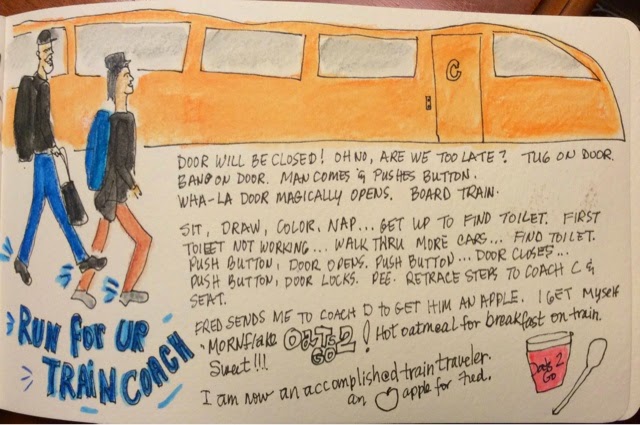 C
DOOR WILL BE CLOSED! OH NO, ARE WE TOO LATE? TUG ON DOOR.
BANG ON DOOR. MAN COMES & PUSHES BUTTON.
WHA-LA DOOR MAGICALLY OPENS. BOARD TRAIN.
SIT, DRAW, COLOR, NAP... GET UP TO FIND TOILET. FIRST
TOILET NOT WORKING... WALK THRU MORE CARS... FIND TOILET.
PUSH BUTTON, DOOR OPENS. PUSH BUTTON... DOOR CLOSES...
PUSH BUTTON, DOOR LOCKS. PEE. RETRACE STEPS TO COACH C &
SEAT.
FRED SENDS ME TO COACH D TO GET HIM AN APPLE. I GET MYSELF
"MORNFLAKE OATS 2 GO! Hot oatmeal for breakfast on train.
Sweet!!!
I am now an accomplished train traveler.
an apple for Fred.
Oats 2
GO
RUN FOR UR
TRAIN COACH